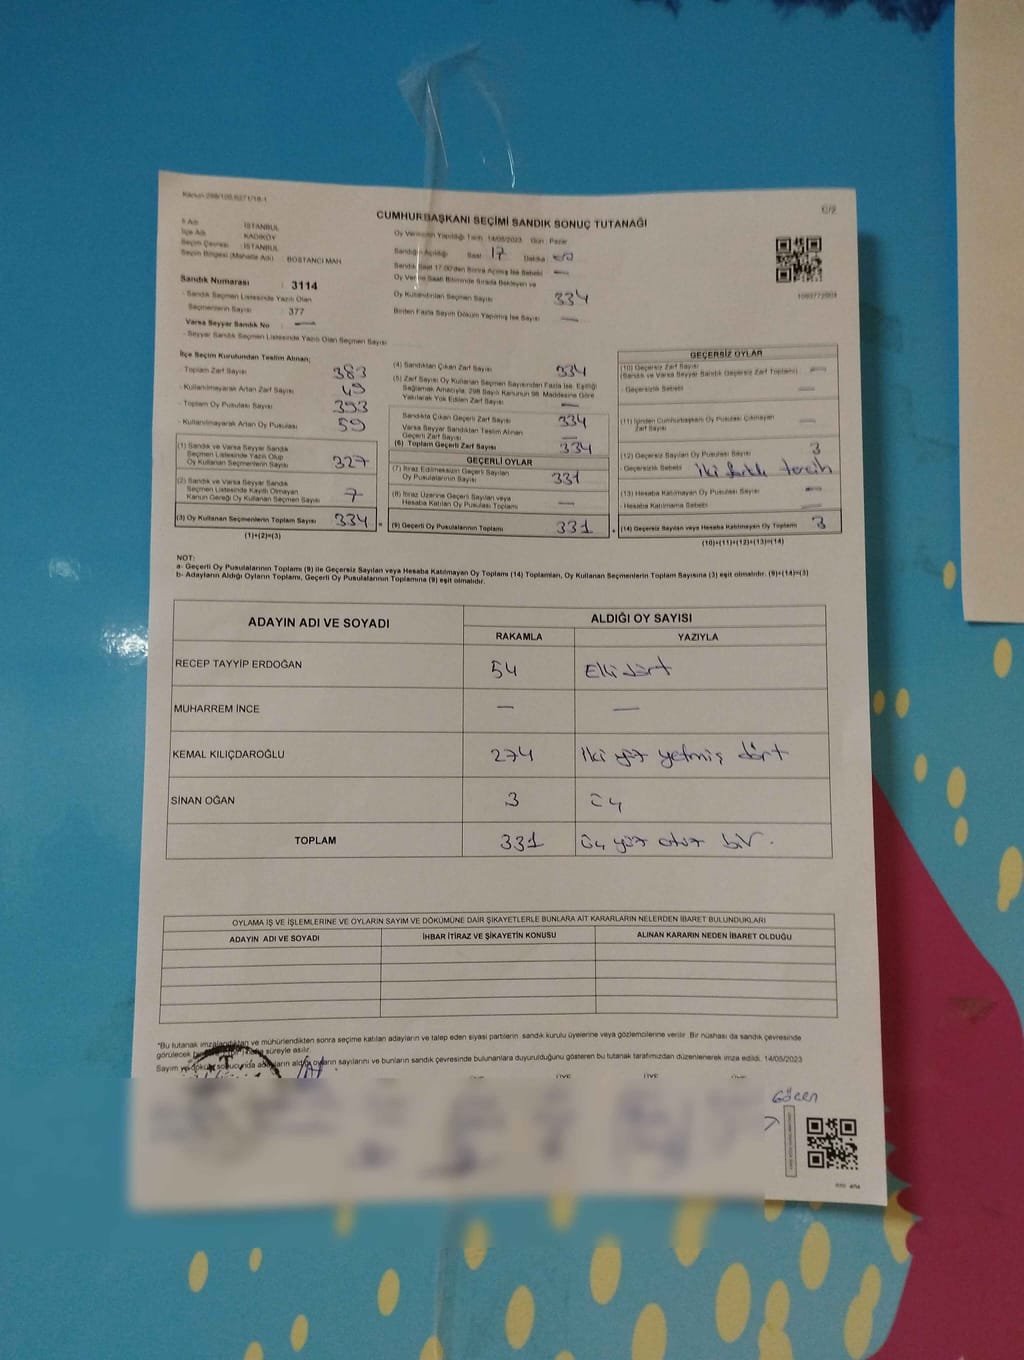 Kanun 298/100,6271/18-1
C/2
CUMHURBAŞKANI SEÇİMİ SANDIK SONUÇ TUTANAĞI
İl Adı : İSTANBUL
İlçe Adı : KADIKÖY
Seçim Çevresi : İSTANBUL
Seçim Bölgesi (Mahalle Adı) : BOSTANCI MAH.
Sandık Numarası : 3114
- Sandık Seçmen Listesinde Yazılı Olan
Seçmenlerin Sayısı : 377
Varsa Seyyar Sandık No : —
- Seyyar Sandık Seçmen Listesinde Yazılı Olan Seçmen Sayısı :
Oy Vermenin Yapıldığı Tarih : 14/05/2023 Gün : Pazar
Sandığın Açıldığı Saat 17 Dakika
Sandık Saat 17:00'den Sonra Açılmış İse Sebebi —
Oy Verme Saati Bitiminde Sırada Bekleyen ve
Oy Kullandırılan Seçmen Sayısı 334
Birden Fazla Sayım Döküm Yapılmış İse Sayısı —
İlçe Seçim Kurulundan Teslim Alınan;
- Toplam Zarf Sayısı 383
- Kullanılmayarak Artan Zarf Sayısı 49
- Toplam Oy Pusulası Sayısı 393
- Kullanılmayarak Artan Oy Pusulası 59
(1) Sandık ve Varsa Seyyar Sandık
Seçmen Listesinde Yazılı Olup
Oy Kullanan Seçmenlerin Sayısı 327
(2) Sandık ve Varsa Seyyar Sandık
Seçmen Listesinde Kayıtlı Olmayan
Kanun Gereği Oy Kullanan Seçmen Sayısı 7
(3) Oy Kullanan Seçmenlerin Toplam Sayısı 334
(1)+(2)=(3)
(4) Sandıktan Çıkan Zarf Sayısı 334
(5) Zarf Sayısı Oy Kullanan Seçmen Sayısından Fazla İse, Eşitliği
Sağlamak Amacıyla, 298 Sayılı Kanunun 98. Maddesine Göre
Yakılarak Yok Edilen Zarf Sayısı —
Sandıkta Çıkan Geçerli Zarf Sayısı 334
Varsa Seyyar Sandıktan Teslim Alınan
Geçerli Zarf Sayısı —
(6) Toplam Geçerli Zarf Sayısı 334
GEÇERLİ OYLAR
(7) İtiraz Edilmeksizin Geçerli Sayılan
Oy Pusulalarının Sayısı 331
(8) İtiraz Üzerine Geçerli Sayılan veya
Hesaba Katılan Oy Pusulası Toplamı —
(9) Geçerli Oy Pusulalarının Toplamı 331
GEÇERSİZ OYLAR
(10) Geçersiz Zarf Sayısı
(Sandık ve Varsa Seyyar Sandık Geçersiz Zarf Toplamı) —
- Geçersizlik Sebebi —
(11) İçinden Cumhurbaşkanı Oy Pusulası Çıkmayan
Zarf Sayısı —
(12) Geçersiz Sayılan Oy Pusulası Sayısı 3
Geçersizlik Sebebi İki farklı tercih
(13) Hesaba Katılmayan Oy Pusulası Sayısı —
- Hesaba Katılmama Sebebi —
(14) Geçersiz Sayılan veya Hesaba Katılmayan Oy Toplamı 3
(10)+(11)+(12)+(13)=(14)
NOT:
a- Geçerli Oy Pusulalarının Toplamı (9) ile Geçersiz Sayılan veya Hesaba Katılmayan Oy Toplamı (14) Toplamları, Oy Kullanan Seçmenlerin Toplam Sayısına (3) eşit olmalıdır. (9)+(14)=(3)
b- Adayların Aldığı Oyların Toplamı, Geçerli Oy Pusulalarının Toplamına (9) eşit olmalıdır.
ADAYIN ADI VE SOYADI ALDIĞI OY SAYISI
RAKAMLA YAZIYLA
RECEP TAYYİP ERDOĞAN 54 Elli dört
MUHARREM İNCE — —
KEMAL KILIÇDAROĞLU 274 İki yüz yetmiş dört
SİNAN OĞAN 3 Üç
TOPLAM 331 Üç yüz otuz bir.
OYLAMA İŞ VE İŞLEMLERİNE VE OYLARIN SAYIM VE DÖKÜMÜNE DAİR ŞİKAYETLERLE BUNLARA AİT KARARLARIN NELERDEN İBARET BULUNDUKLARI
ADAYIN ADI VE SOYADI İHBAR İTİRAZ VE ŞİKAYETİN KONUSU ALINAN KARARIN NEDEN İBARET OLDUĞU
*Bu tutanak imzalandıktan ve mühürlendikten sonra seçime katılan adayların ve talep eden siyasi partilerin sandık kurulu üyelerine veya gözlemcilerine verilir. Bir nüshası da sandık çevresinde
görülecek süreyle asılır.
Sayım ve döküm sonucunda adayların aldığı oyların sayılarını ve bunların sandık çevresinde bulunanlara duyurulduğunu gösteren bu tutanak tarafımızdan düzenlenerek imza edildi. 14/05/2023
ÜYE ÜYE ÜYE ÜYE
Göcen